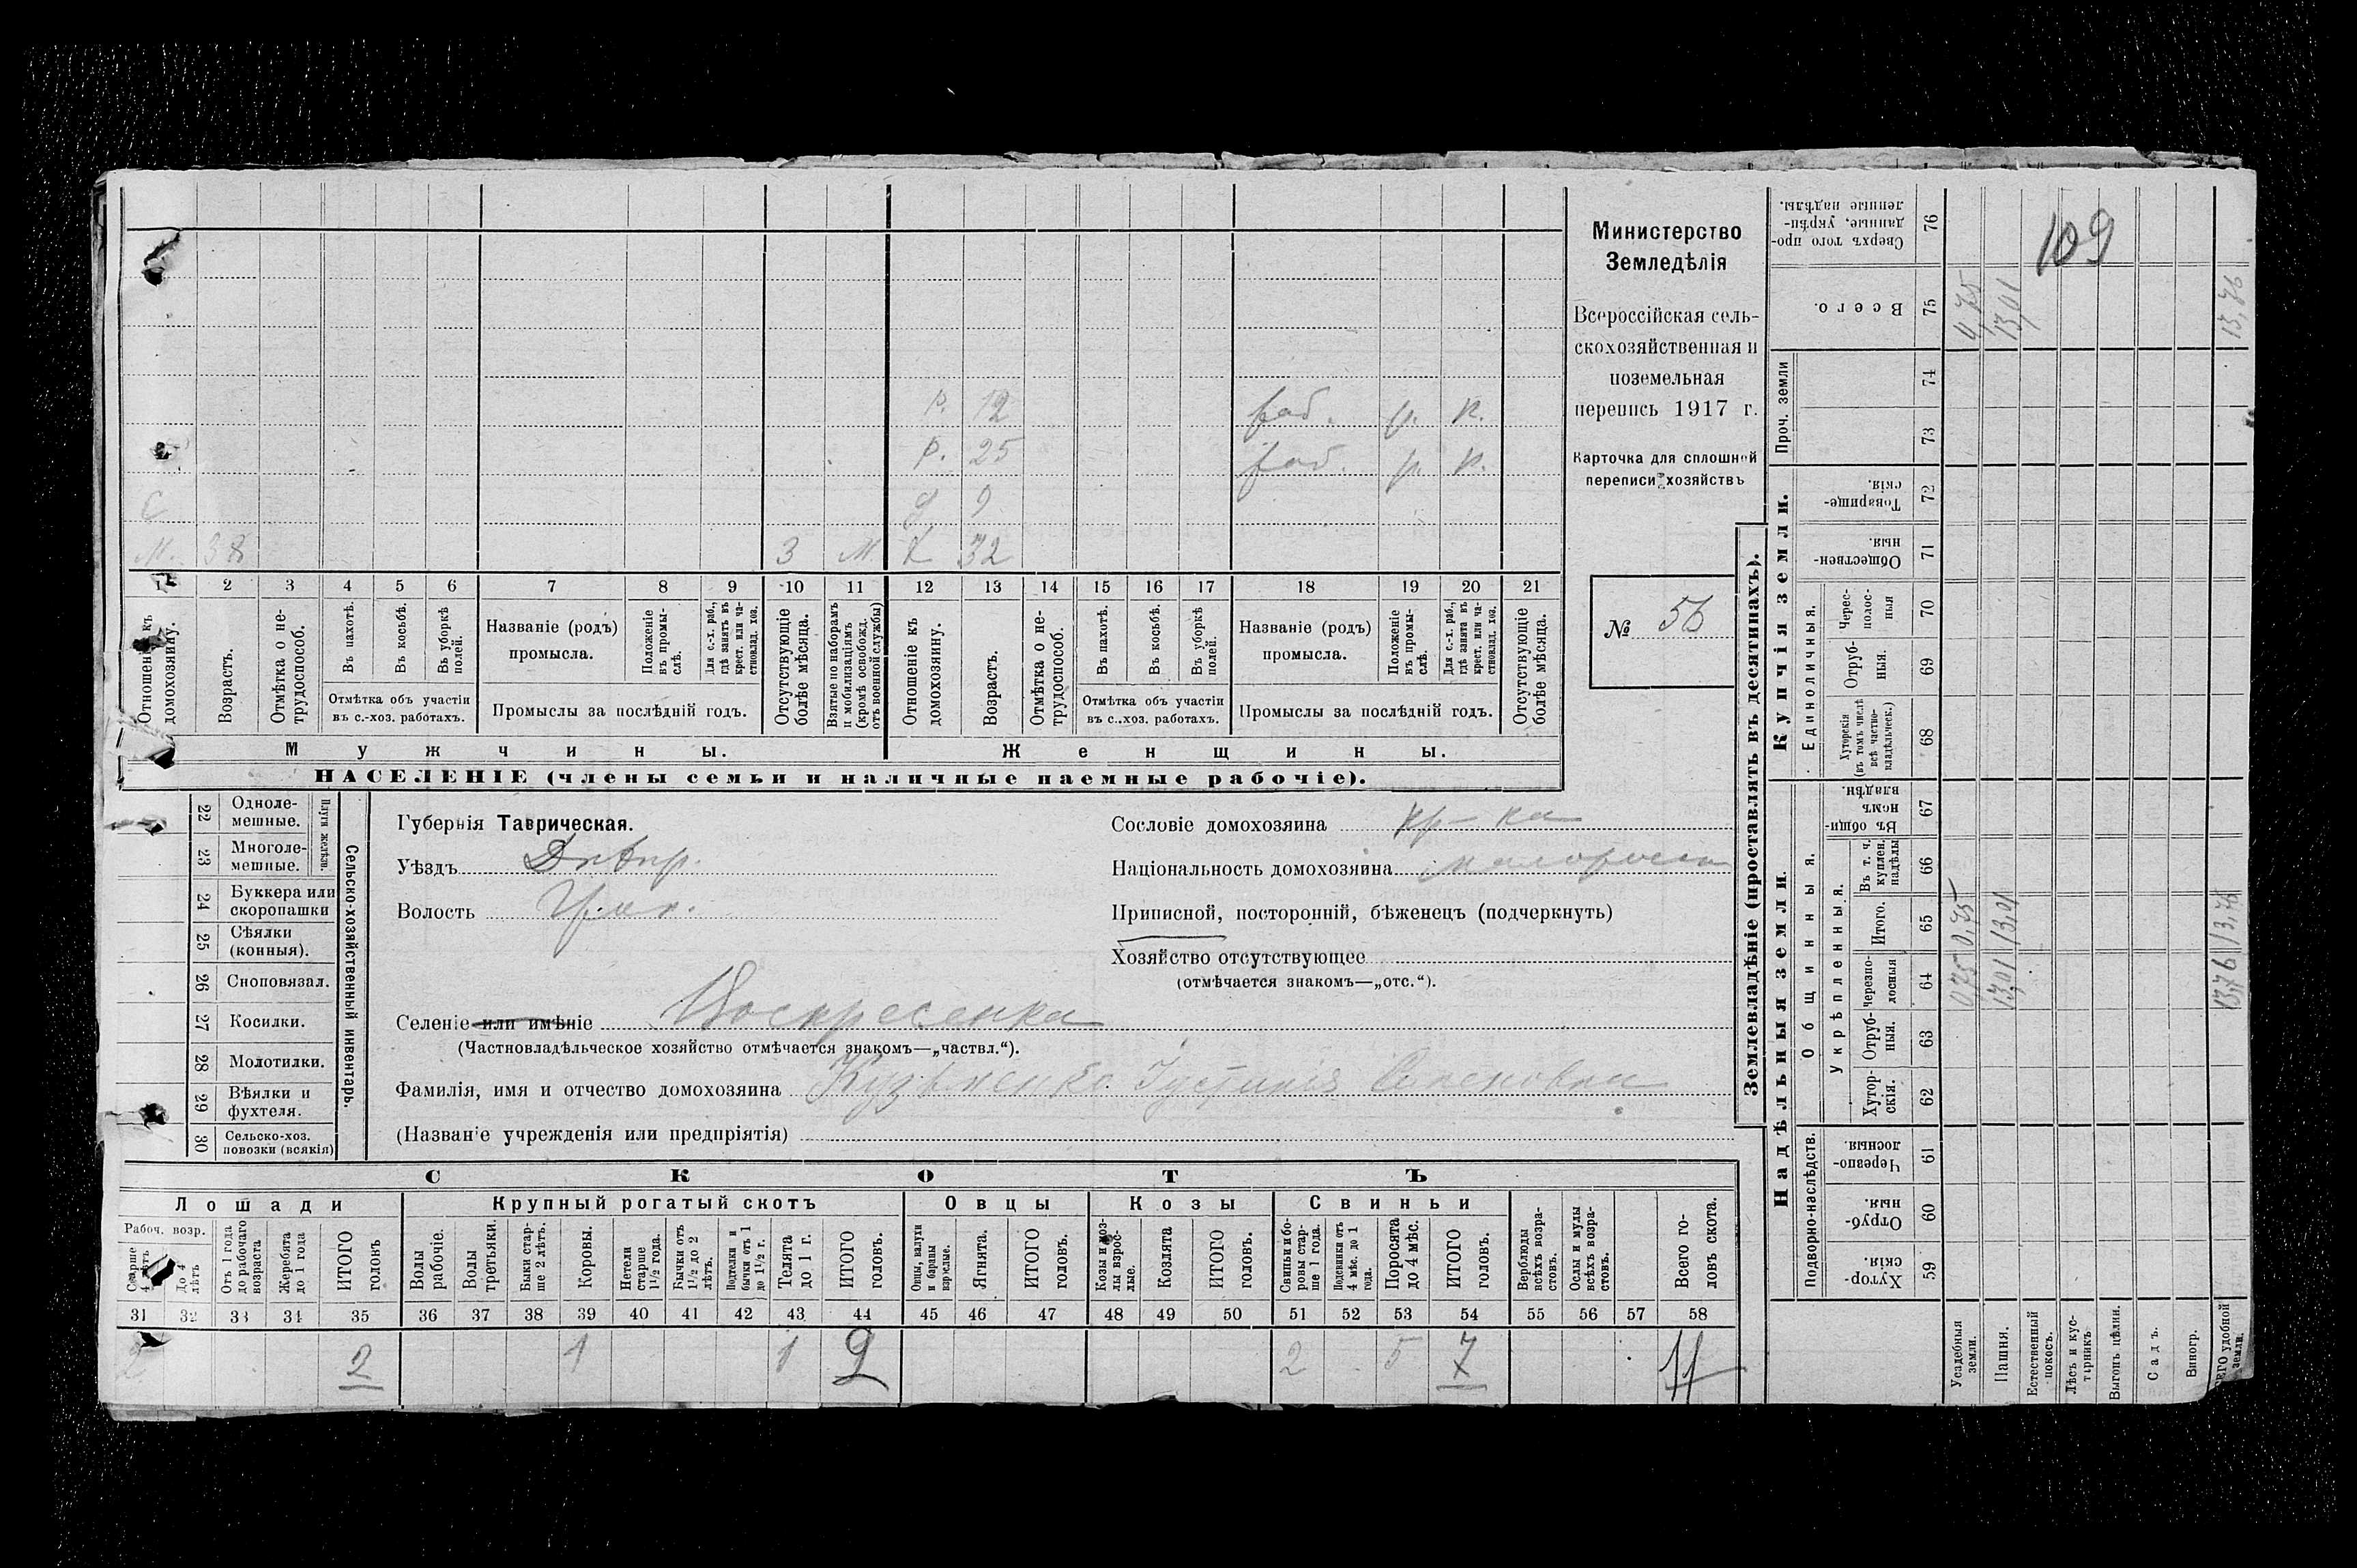 Р. 12 раб. р. к.
Р. 25 раб. р. к.
С 9
М. 38 3 М Х 32
1 2 3 4 5 6 7 8 9 10 11 12 13 14 15 16 17 18 19 20 21
Отношеніе къ домохозяину.
Возрастъ.
Отмѣтка о не-
трудоспособ.
Въ пахотѣ.
Въ косьбѣ.
Въ уборкѣ
полей.
Отмѣтка объ участіи
въ с.-хоз. работахъ.
Названіе (родъ)
промысла.
Положеніе
въ промы-
слѣ.
Для с.-х. раб.,
гдѣ занятъ въ
крест. или ча-
стновлад. хоз.
Промыслы за послѣдній годъ.
Отсутствующіе
болѣе мѣсяца.
Взятые по наборамъ
и мобилизаціямъ
(кромѣ освобожд.
отъ военной службы)
Отношеніе къ
домохозяину.
Возрастъ.
Отмѣтка о не-
трудоспособ.
Въ пахотѣ.
Въ косьбѣ.
Въ уборкѣ
полей.
Отмѣтка объ участіи
въ с.-хоз. работахъ.
Названіе (родъ)
промысла.
Положеніе
въ промы-
слѣ.
Для с.-х. раб.,
гдѣ занята въ
крест. или ча-
стновлад. хоз.
Промыслы за послѣдній годъ.
Отсутствующіе
болѣе мѣсяца.
Мужчины.
Женщины.
НАСЕЛЕНІЕ (члены семьи и наличные наемные рабочіе).
Министерство
Земледѣлія
Всероссійская сель-
скохозяйственная и
поземельная
перепись 1917 г.
Карточка для сплошной
переписи хозяйствъ
№ 56
22 Одноле-
мешные.
23 Многоле-
мешные.
Плуги желѣзн.
24 Буккера или
скоропашки
25 Сѣялки
(конныя).
26 Сноповязал.
27 Косилки.
28 Молотилки.
29 Вѣялки и
фухтеля.
30 Сельско-хоз.
повозки (всякія)
Сельско-хозяйственный инвентарь.
Губернія Таврическая.
Уѣздъ Днѣпр.
Волость
Селеніе или имѣніе Воскресенка
(Частновладѣльческое хозяйство отмѣчается знакомъ—„частвл.“).
Фамилія, имя и отчество домохозяина Кузьменко Устинія
(Названіе учрежденія или предпріятія)
Сословіе домохозяина кр-ка
Національность домохозяина малоросс
Приписной, посторонній, бѣженецъ (подчеркнуть)
Хозяйство отсутствующее
(отмѣчается знакомъ—„отс.“).
СКОТЪ
Лошади
Рабоч. возр.
Старше
4 лѣтъ
До 4
лѣтъ
Отъ 1 года
до рабочаго
возраста
Жеребята
до 1 года
ИТОГО
головъ
Крупный рогатый скотъ
Волы
рабочіе.
Волы
третьяки.
Быки стар-
ше 2 лѣтъ.
Коровы.
Нетели
старше
1½ года.
Бычки отъ
1½ до 2
лѣтъ.
Подтелки и
бычки отъ 1
до 1½ г.
Телята
до 1 г.
ИТОГО
головъ.
Овцы
Овцы, валухи
и бараны
взрослые.
Ягнята.
ИТОГО
головъ.
Козы
Козы и коз-
лы взрос-
лые.
Козлята
ИТОГО
головъ.
Свиньи
Свиньи и бо-
ровы стар-
ше 1 года.
Подсвинки отъ
4 мѣс. до 1
года.
Поросята
до 4 мѣс.
ИТОГО
головъ.
Верблюды
всѣхъ возра-
стовъ.
Ослы и мулы
всѣхъ возра-
стовъ.
Всего го-
ловъ скота.
31 32 33 34 35 36 37 38 39 40 41 42 43 44 45 46 47 48 49 50 51 52 53 54 55 56 57 58
2 2 1 1 2 2 5 7 11
Землевладѣніе (проставлять въ десятинахъ).
Купчія земли.
Надѣльныя земли.
Сверхъ того про-
данные, укрѣп-
ленные надѣлы.
76
109
Всего.
75
0,75
13,01
13,76
Проч. земли
74
73
Товарище-
скія.
72
Обществен-
ныя.
71
Единоличныя.
Черес-
полос-
ныя
70
Отруб-
ныя.
69
Хуторскія
(въ томъ числѣ
всѣ частно-
владѣльческ.)
68
Общинныя.
Въ общи-
номъ
владѣн.
67
Укрѣпленныя.
Въ т. ч.
куплен.
надѣлы
66
Итого.
65
0,75
13,01
13,76
Черезпо-
лосныя
64
0,75
13,01
13,76
Отруб-
ныя.
63
Хутор-
скія.
62
Подворно-наслѣдств.
Черезпо-
лосныя.
61
Отруб-
ныя.
60
Хутор-
скія.
59
Усадебныя
земли.
Пашня.
Естественный
покосъ.
Лѣсъ и кус-
тарникъ
Выгонъ цѣлин.
Садъ.
Виногр.
ВСЕГО удобной
земли.